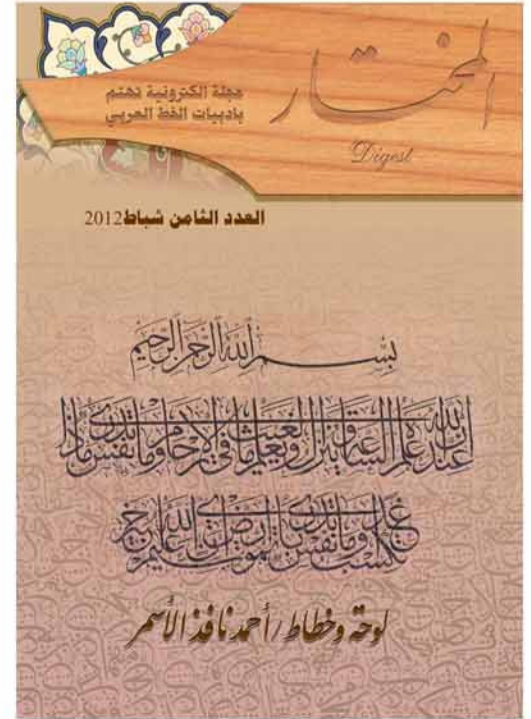 المختار
Digest
مجلة الكترونية تهتم
بأدبيات الخط العربي
العدد الثامن شباط2012
بسم الله الرحمن الرحيم
إن الله عنده علم الساعة وينزل الغيث ويعلم ما في الارحام وما تدرى نفس ماذا
تكسب غدا وما تدرى نفس بأى ارض تموت ان الله عليم خبير
لوحة وخطاط/أحمد نافذ الأسمر